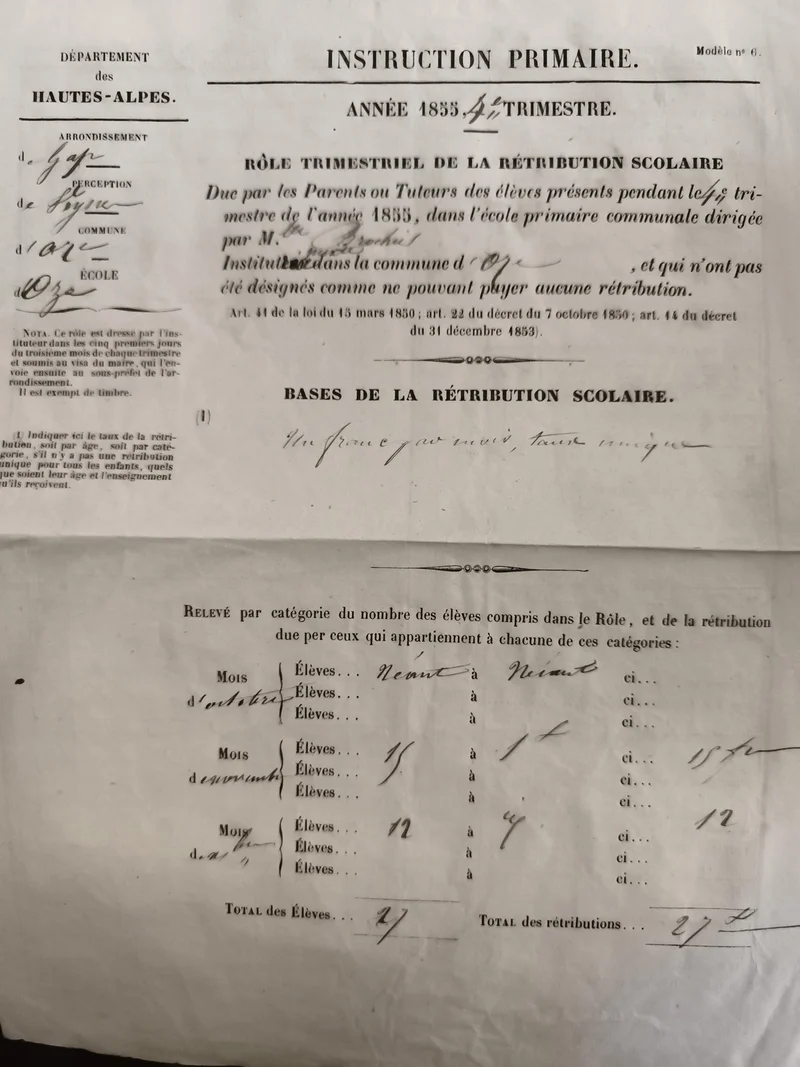 DÉPARTEMENT
des
HAUTES-ALPES.
ARRONDISSEMENT
de Gap
PERCEPTION
de Veynes
COMMUNE
d'Oze
ÉCOLE
d'Oze
NOTA. Ce rôle est dressé par l'ins-
tituteur dans les cinq premiers jours
du troisième mois de chaque trimestre
et soumis au visa du maire, qui l'en-
voie ensuite au sous-préfet de l'ar-
rondissement.
Il est exempt de timbre.
(1) Indiquer ici le taux de la rétri-
bution, soit par âge, soit par caté-
gorie, s'il n'y a pas une rétribution
unique pour tous les enfants, quels
que soient leur âge et l'enseignement
qu'ils reçoivent.
Modèle n° 6.
INSTRUCTION PRIMAIRE.
ANNÉE 1855, 4e TRIMESTRE.
RÔLE TRIMESTRIEL DE LA RÉTRIBUTION SCOLAIRE
Due par les Parents ou Tuteurs des élèves présents pendant le 4e tri-
mestre de l'année 1855, dans l'école primaire communale dirigée
par M.
dans la commune d'Oze, et qui n'ont pas
été désignés comme ne pouvant payer aucune rétribution.
Art. 41 de la loi du 15 mars 1850; art. 22 du décret du 7 octobre 1850; art. 14 du décret
du 31 décembre 1853).
BASES DE LA RÉTRIBUTION SCOLAIRE.
(1)
Un franc par mois, taux unique
RELEVÉ par catégorie du nombre des élèves compris dans le Rôle, et de la rétribution
due per ceux qui appartiennent à chacune de ces catégories :
Mois d'octobre
Élèves... Néant à Néant ci...
Élèves... à ci...
Élèves... à ci...
Mois de novembre
Élèves... 15 à 1f ci... 15 f
Élèves... à ci...
Élèves... à ci...
Mois de
Élèves... 12 à ci... 12
Élèves... à ci...
Élèves... à ci...
TOTAL des Élèves... 27 TOTAL des rétributions... 27 f